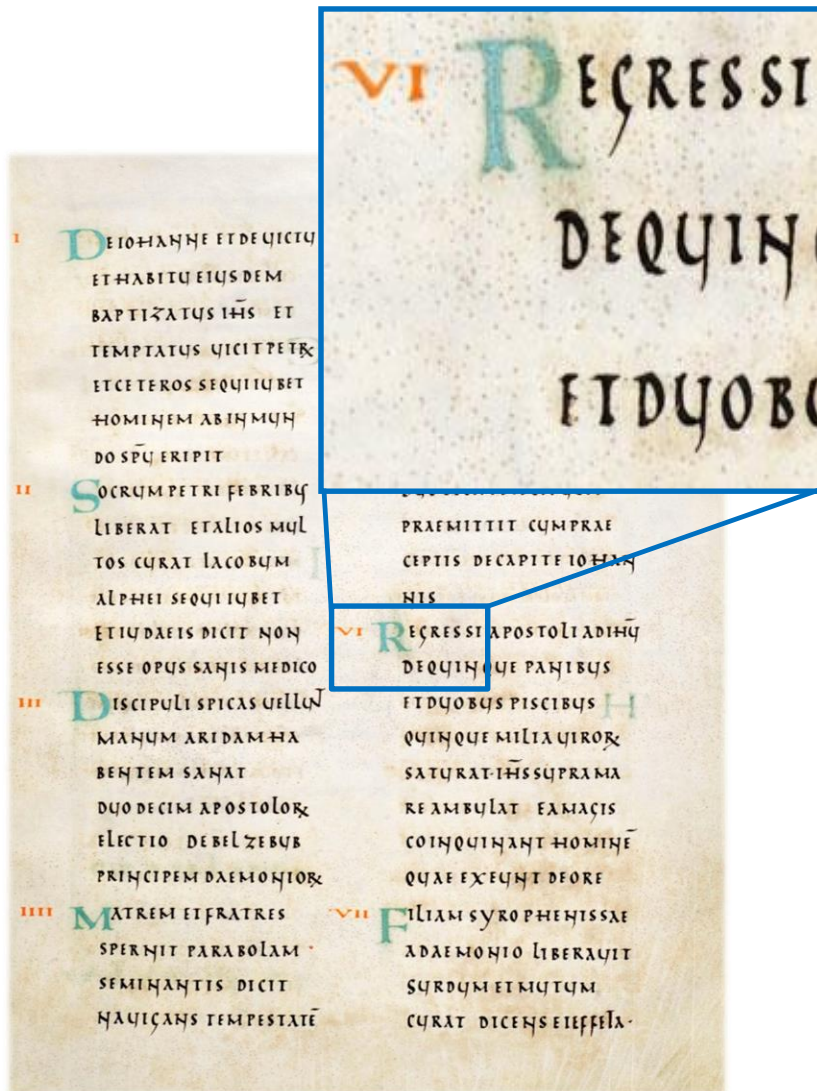 VI REGRESSI
DEQUIN
ETDUOB
I DE IOHANNE ET DE UICTU
ET HABITU EIUSDEM
BAPTIZATUS IH̅S ET
TEMPTATUS UICIT PETꝜ
ET CETEROS SEQUI IUBET
HOMINEM AB INMUN
DO SPU̅ ERIPIT
II SOCRUM PETRI FEBRIBUS
LIBERAT ET ALIOS MUL
TOS CURAT IACOBUM
ALPHEI SEQUI IUBET
ET IUDAEIS DICIT NON
ESSE OPUS SANIS MEDICO
III DISCIPULI SPICAS UELLUNT
MANUM ARIDAM HA
BENTEM SANAT
DUODECIM APOSTOLOꝜ
ELECTIO DE BELZEBUB
PRINCIPEM DAEMONIOꝜ
IIII MATREM ET FRATRES
SPERNIT PARABOLAM ·
SEMINANTIS DICIT
NAUIGANS TEMPESTATE̅
PRAEMITTIT CUM PRAE
CEPTIS DE CAPITE IOHAN
NIS
VI REGRESSI APOSTOLI AD IH̅U
DE QUINQUE PANIBUS
ET DUOBUS PISCIBUS
QUINQUE MILIA UIROꝜ
SATURAT · IH̅S SUPRA MA
RE AMBULAT EA MAGIS
COINQUINANT HOMINE̅
QUAE EXEUNT DE ORE
VII FILIAM SYROPHENISSAE
A DAEMONIO LIBERAUIT
SURDUM ET MUTUM
CURAT DICENS EI EFFETA ·